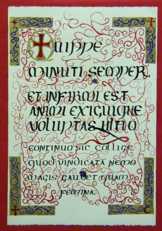 Quippe
minuti semper
et infirmi est
animi exiguique
voluptas ultio
continuo sic collige
quod vindicata nemo
magis gaudet quam
femina